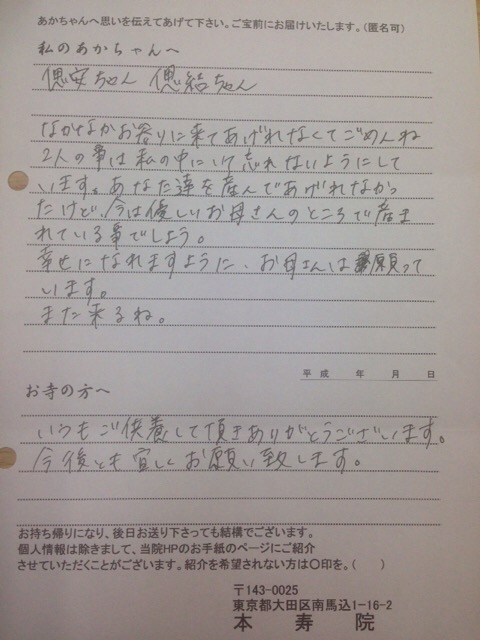 あかちゃんへ思いを伝えてあげて下さい。ご宝前にお届けいたします。（匿名可）
私のあかちゃんへ
偲安ちゃん 偲結ちゃん
なかなかお参りに来てあげれなくてごめんね
2人の事は私の中にいて忘れないようにして
います。あなた達を産んであげれなかっ
たけど、今は優しいお母さんのところで産ま
れている事でしょう。
幸せになれますように、お母さんは願って
います。
また来るね。
平成 年 月 日
お寺の方へ
いつもご供養して頂きありがとうございます。
今後とも宜しくお願い致します。
お持ち帰りになり、後日お送り下さっても結構でございます。
個人情報は除きまして、当院HPのお手紙のページにご紹介
させていただくことがございます。紹介を希望されない方は〇印を。（ ）
〒143-0025
東京都大田区南馬込1-16-2
本寿院